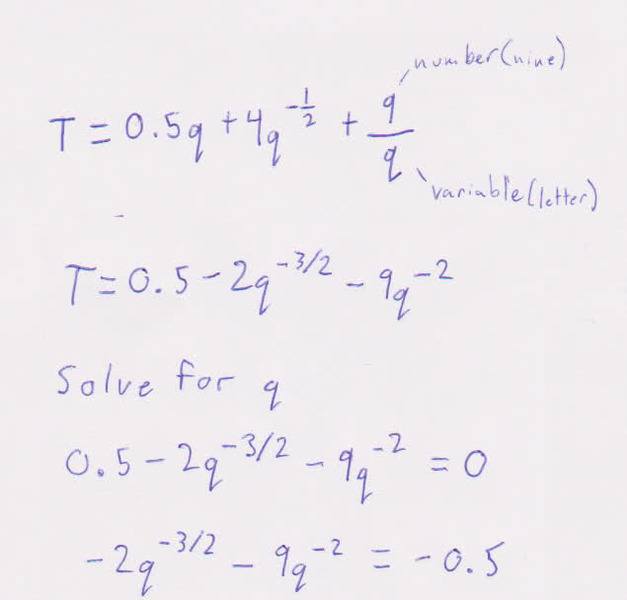 number(nine)
T = 0.5q + 4q^-1/2 + 9/q
variable(letter)
T = 0.5 - 2q^-3/2 - 9q^-2
Solve for q
0.5 - 2q^-3/2 - 9q^-2 = 0
-2q^-3/2 - 9q^-2 = -0.5